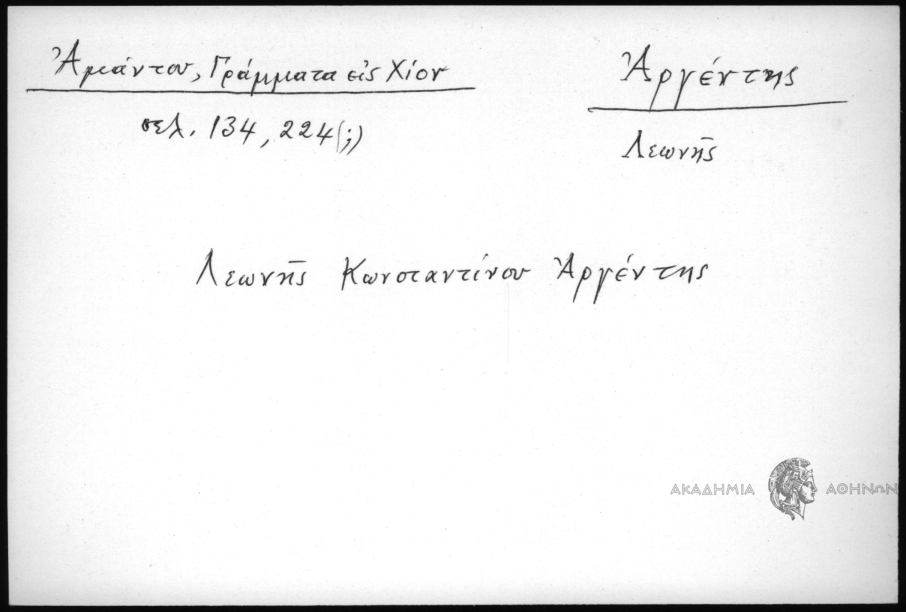 Ἀμάντου, Γράμματα εἰς Χίον
σελ. 134, 224(;)
Ἀργέντης
Λεωνῆς
Λεωνῆς Κωνσταντίνου Ἀργέντης
ΑΚΑΔΗΜΙΑ ΑΘΗΝΩΝ